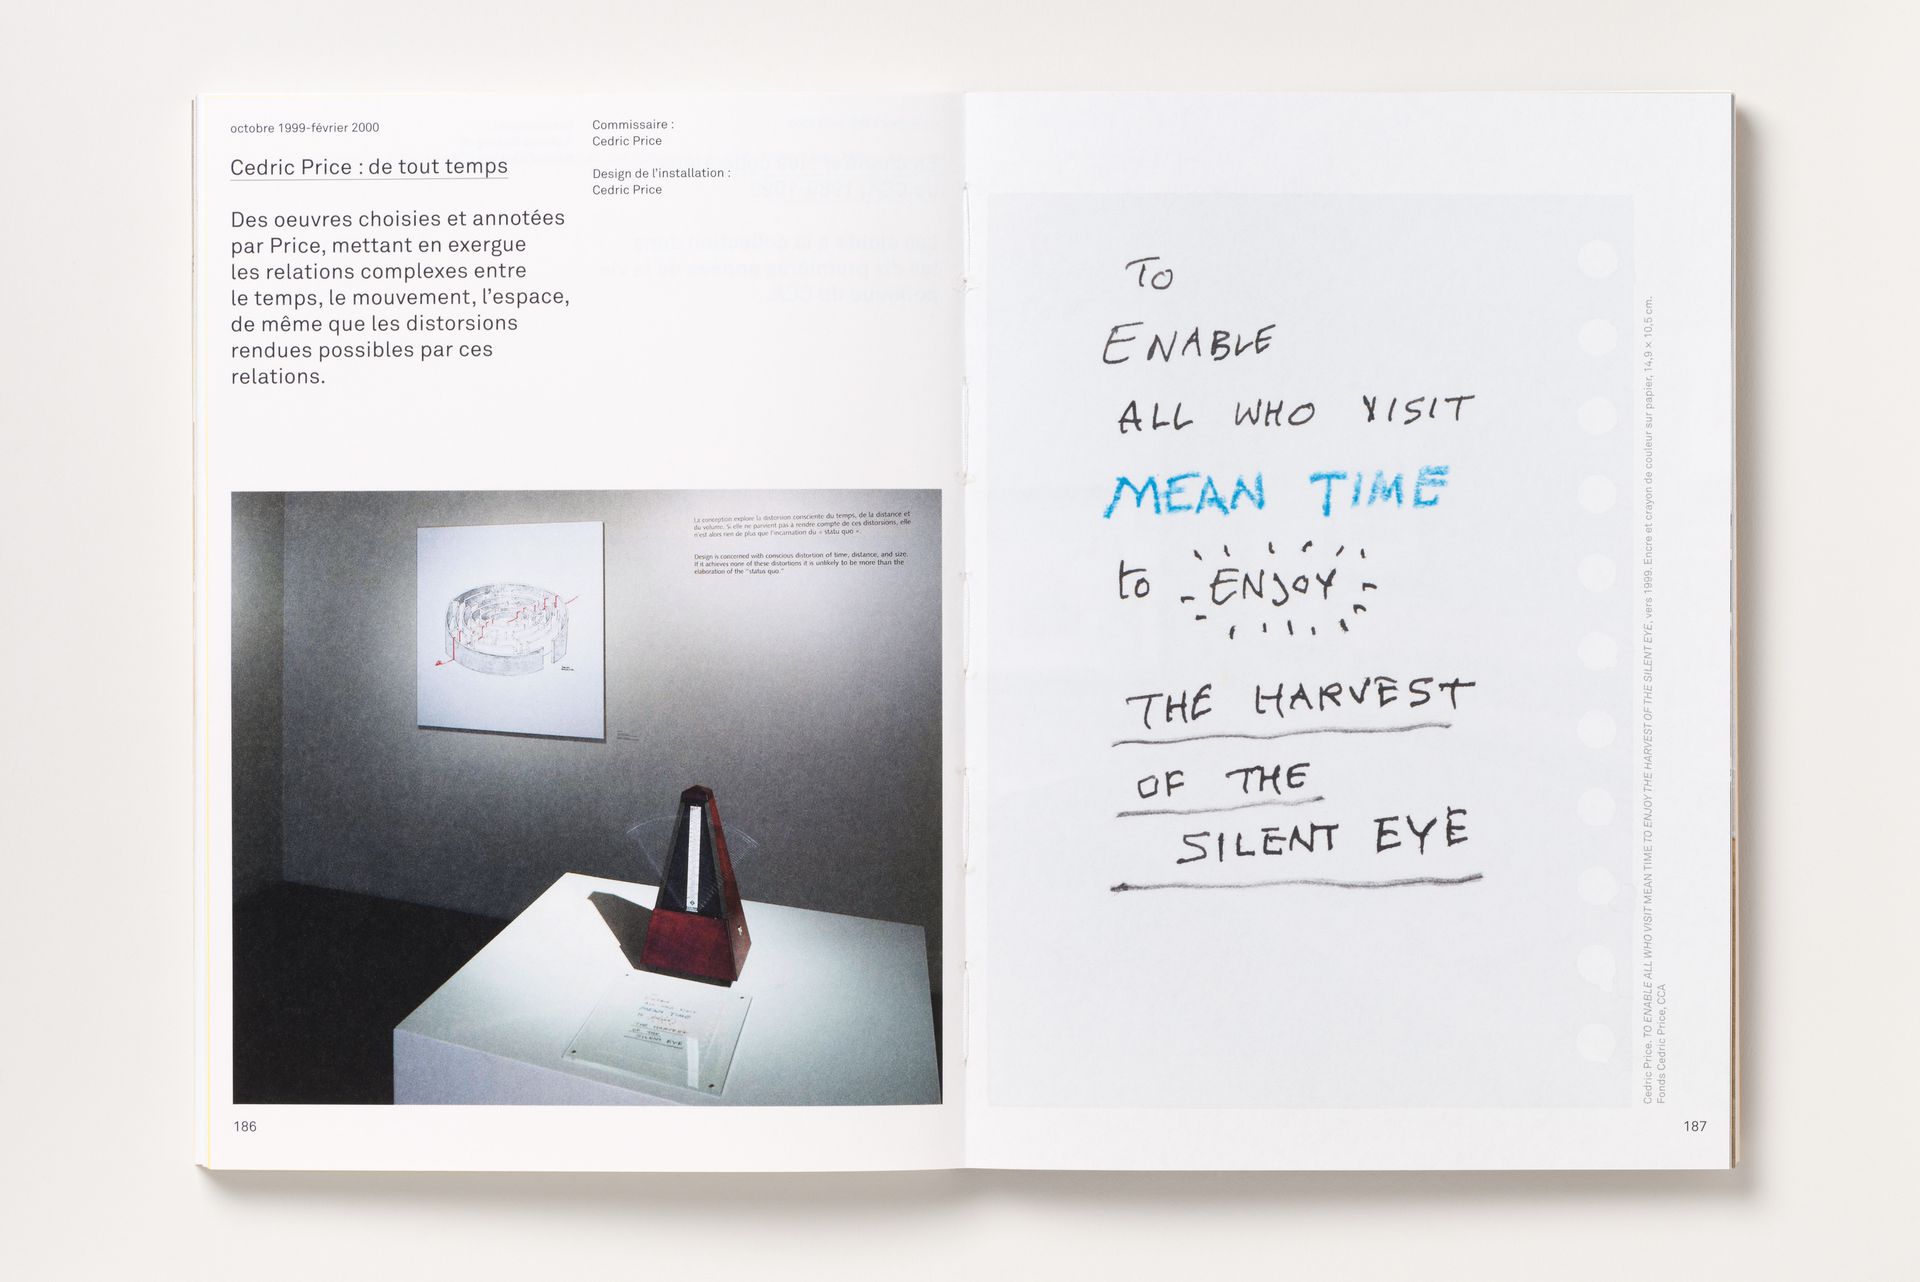 octobre 1999-février 2000
Cedric Price : de tout temps
Des oeuvres choisies et annotées
par Price, mettant en exergue
les relations complexes entre
le temps, le mouvement, l'espace,
de même que les distorsions
rendues possibles par ces
relations.
Commissaire :
Cedric Price
Design de l'installation :
Cedric Price
La conception explore la distorsion consciente du temps, de la distance et
du volume. Si elle ne parvient pas à rendre compte de ces distorsions, elle
n'est alors rien de plus que l'incarnation du « statu quo ».
Design is concerned with conscious distortion of time, distance, and size.
If it achieves none of these distortions it is unlikely to be more than the
elaboration of the "status quo."
ALL WHO VISIT
MEAN TIME
to ENJOY
THE HARVEST
OF THE
SILENT EYE
186
TO
ENABLE
ALL WHO VISIT
MEAN TIME
to ENJOY
THE HARVEST
OF THE
SILENT EYE
Cedric Price. TO ENABLE ALL WHO VISIT MEAN TIME TO ENJOY THE HARVEST OF THE SILENT EYE, vers 1999. Encre et crayon de couleur sur papier, 14,9 × 10,5 cm.
Fonds Cedric Price, CCA
187